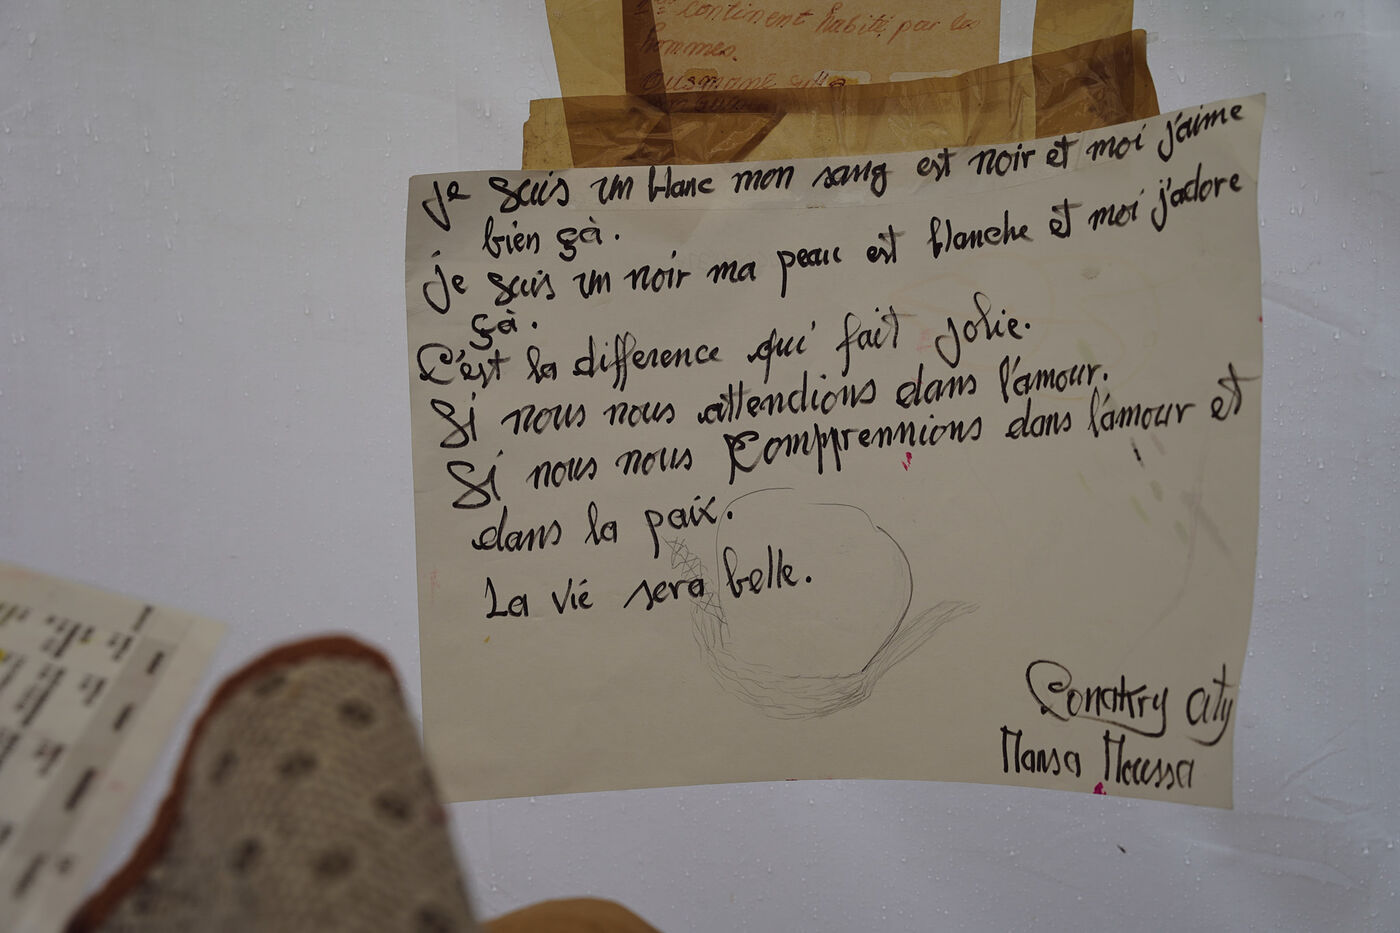 continent habité par les
hommes.
je suis un blanc mon sang est noir et moi j'aime
bien çà.
je suis un noir ma peau est blanche et moi j'adore
çà.
C'est la difference qui fait jolie.
Si nous nous attendions dans l'amour.
Si nous nous Comprennions dans l'amour et
dans la paix.
La vie sera belle.
Conakry City
Mansa Moussa